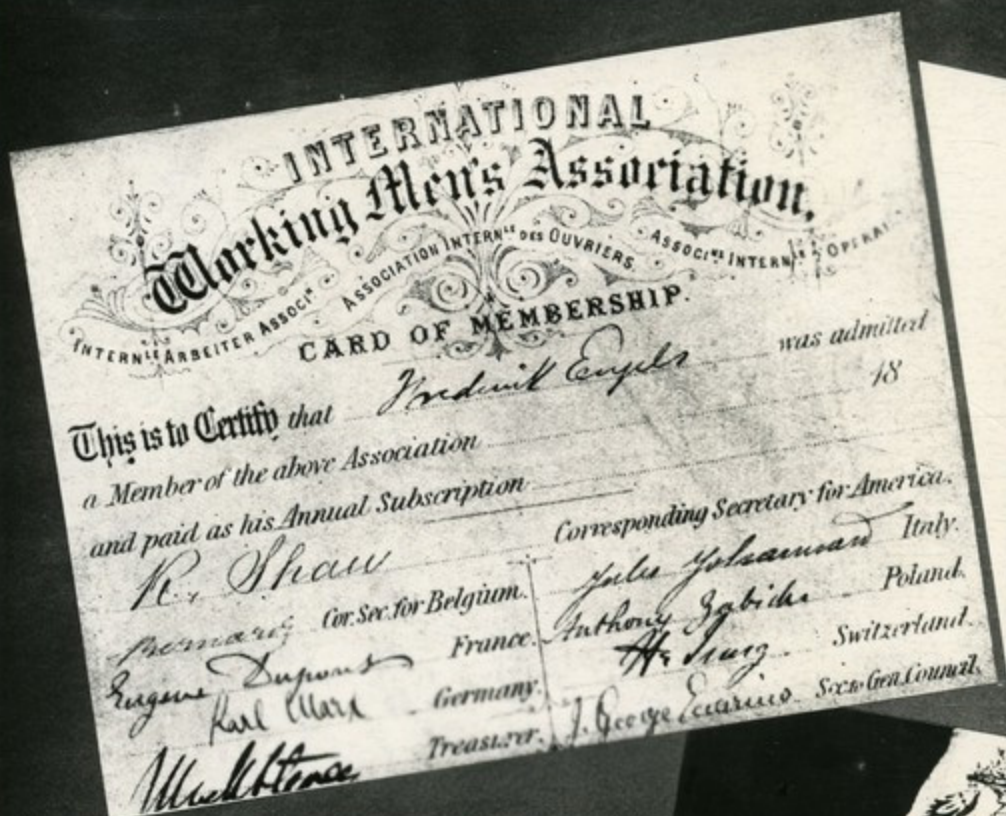 INTERNATIONAL
Working Men's Association.
INTERNLE ARBEITER ASSOCIN ASSOCIATION INTERNLE DES OUVRIERS ASSOCINE INTERNLE OPERAI
CARD OF MEMBERSHIP.
This is to Certify that Frederick Engels was admitted
a Member of the above Association 18
and paid as his Annual Subscription
R. Shaw Corresponding Secretary for America.
Bernard Cor. Sec. for Belgium. Jules Johannard Italy.
Eugene Dupont France. Anthony Zabicki Poland.
Karl Marx Germany. H. Jung Switzerland.
Treasurer. J. George Eccarius Sec. to Gen. Council.